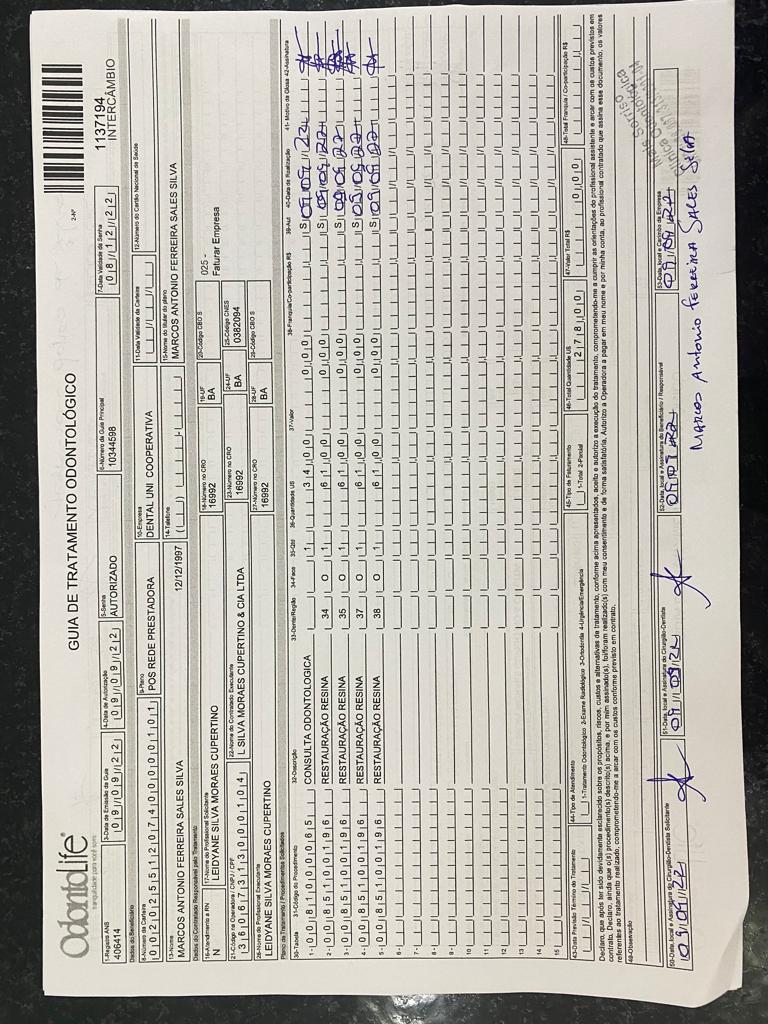 OdontoLife®
tranquilidade para você sorrir
GUIA DE TRATAMENTO ODONTOLÓGICO
2-Nº
1137194
INTERCÂMBIO
1-Registro ANS
406414
3-Data de Emissão da Guia
09/09/22
4-Data de Autorização
09/09/22
5-Senha
AUTORIZADO
6-Número da Guia Principal
10344598
7-Data Validade da Senha
08/12/22
Dados do Beneficiário
8-Número da Carteira
00202551207400000101
9-Plano
POS REDE PRESTADORA
10-Empresa
DENTAL UNI COOPERATIVA
11-Data Validade da Carteira
12-Número do Cartão Nacional de Saúde
13-Nome
MARCOS ANTONIO FERREIRA SALES SILVA
12/12/1997
14-Telefone
15-Nome do titular do plano
MARCOS ANTONIO FERREIRA SALES SILVA
Dados do Contratado Responsável pelo Tratamento
16-Atendimento a RN
N
17-Nome do Profissional Solicitante
LEIDYANE SILVA MORAES CUPERTINO
18-Número no CRO
16992
19-UF
BA
20-Código CBO S
025 -
Faturar Empresa
21-Código na Operadora / CNPJ / CPF
36067313000104
22-Nome do Contratado Executante
L SILVA MORAES CUPERTINO & CIA LTDA
23-Número no CRO
16992
24-UF
BA
25-Código CNES
0382094
26-Nome do Profissional Executante
LEIDYANE SILVA MORAES CUPERTINO
27-Número no CRO
16992
28-UF
BA
29-Código CBO S
Plano de Tratamento / Procedimentos Solicitados
30-Tabela 31-Código do Procedimento 32-Descrição 33-Dente/Região 34-Face 35-Qtd 36-Quantidade US 37-Valor 38-Franquia/Co-participação R$ 39-Aut 40-Data de Realização 41- Motivo da Glosa 42-Assinatura
1- 00 81000065 CONSULTA ODONTOLOGICA 1 34,00 0,00 S 09/09/22
2- 00 85100196 RESTAURAÇÃO RESINA 34 O 1 61,00 0,00 S 09/09/22
3- 00 85100196 RESTAURAÇÃO RESINA 35 O 1 61,00 0,00 S 09/09/22
4- 00 85100196 RESTAURAÇÃO RESINA 37 O 1 61,00 0,00 S 09/09/22
5- 00 85100196 RESTAURAÇÃO RESINA 38 O 1 61,00 0,00 S 09/09/22
6-
7-
8-
9-
10
11
12
13
14
15
43-Data Previsão Término do Tratamento
44-Tipo de Atendimento
1-Tratamento Odontológico 2-Exame Radiológico 3-Ortodontia 4-Urgência/Emergência
45-Tipo de Faturamento
1-Total 2-Parcial
46-Total Quantidade US
278,00
47-Valor Total R$
0,00
48-Total Franquia / Co-participação R$
Declaro, que após ter sido devidamente esclarecido sobre os propósitos, riscos, custos e alternativas de tratamento, conforme acima apresentados, aceito e autorizo a execução do tratamento, comprometendo-me a cumprir as orientações do profissional assistente e arcar com os custos previstos em
contrato. Declaro, ainda que o(s) procedimento(s) descrito(s) acima, e por mim assinado(s), foi/foram realizado(s) com meu consentimento e de forma satisfatória. Autorizo a Operadora a pagar em meu nome e por minha conta, ao profissional contratado que assina esse documento, os valores
referentes ao tratamento realizado, comprometendo-me a arcar com os custos conforme previsto em contrato.
49-Observação
50-Data, local e Assinatura do Cirurgião-Dentista Solicitante
09/09/22
51-Data, local e Assinatura do Cirurgião-Dentista
09/09/22
52-Data, local e Assinatura do Beneficiário / Responsável
09/09/22
53-Data, local e Carimbo da Empresa
09/09/22
Marcos Antonio Ferreira Sales Silva